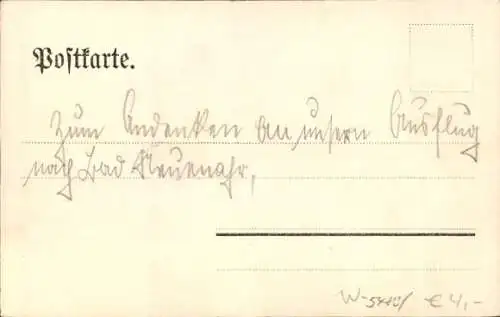 Postkarte.
Zum Andenken an unsern Ausflug
nach Bad Neuenahr,
€ 4,-